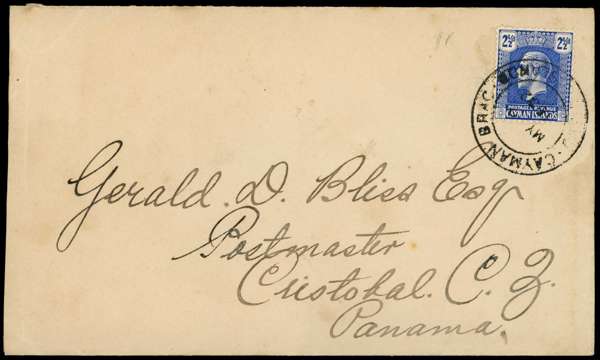 2½ᵈ 2½ᵈ
POSTAGE & REVENUE
CAYMAN ISLANDS
CAYMAN BRAC
MY
Gerald. D. Bliss Esq
Postmaster
Cristobal. C. Z.
Panama.